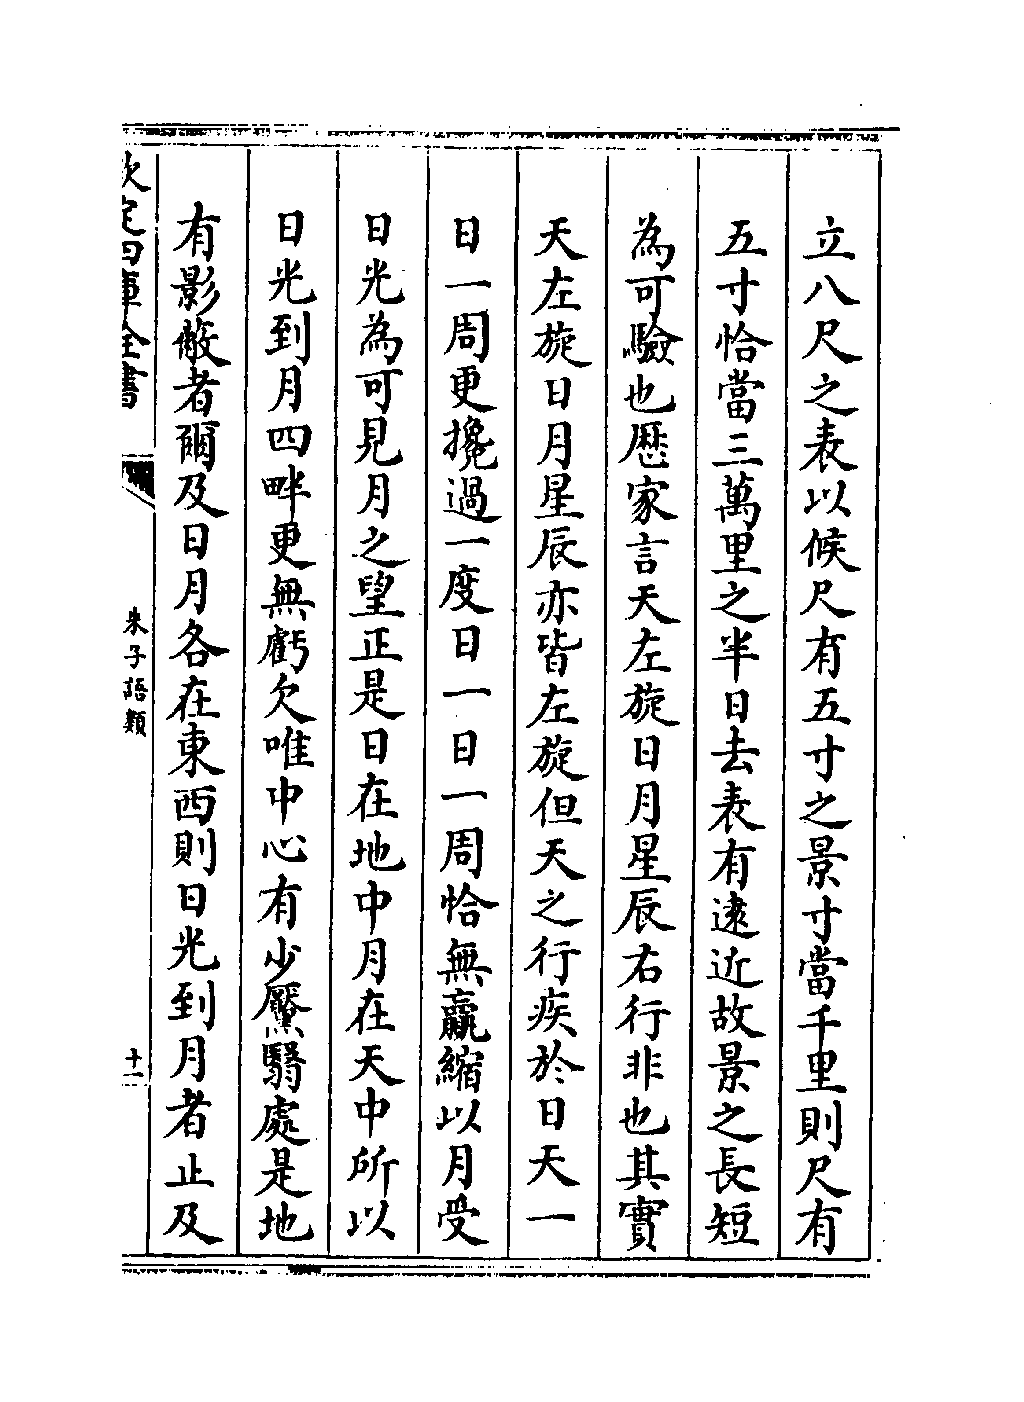 立八尺之表以候尺有五寸之景寸當千里則尺有
五寸恰當三萬里之半日去表有逺近故景之長短
為可驗也厯家言天左旋日月星辰右行非也其實
天左旋日月星辰亦皆左旋但天之行疾於日天一
日一周更攙過一度日一日一周恰無贏縮以月受
日光為可見月之望正是日在地中月在天中所以
日光到月四畔更無虧欠唯中心有少黶翳處是地
有影蔽者爾及日月各在東西則日光到月者止及
欽定四庫全書
朱子語類
十一